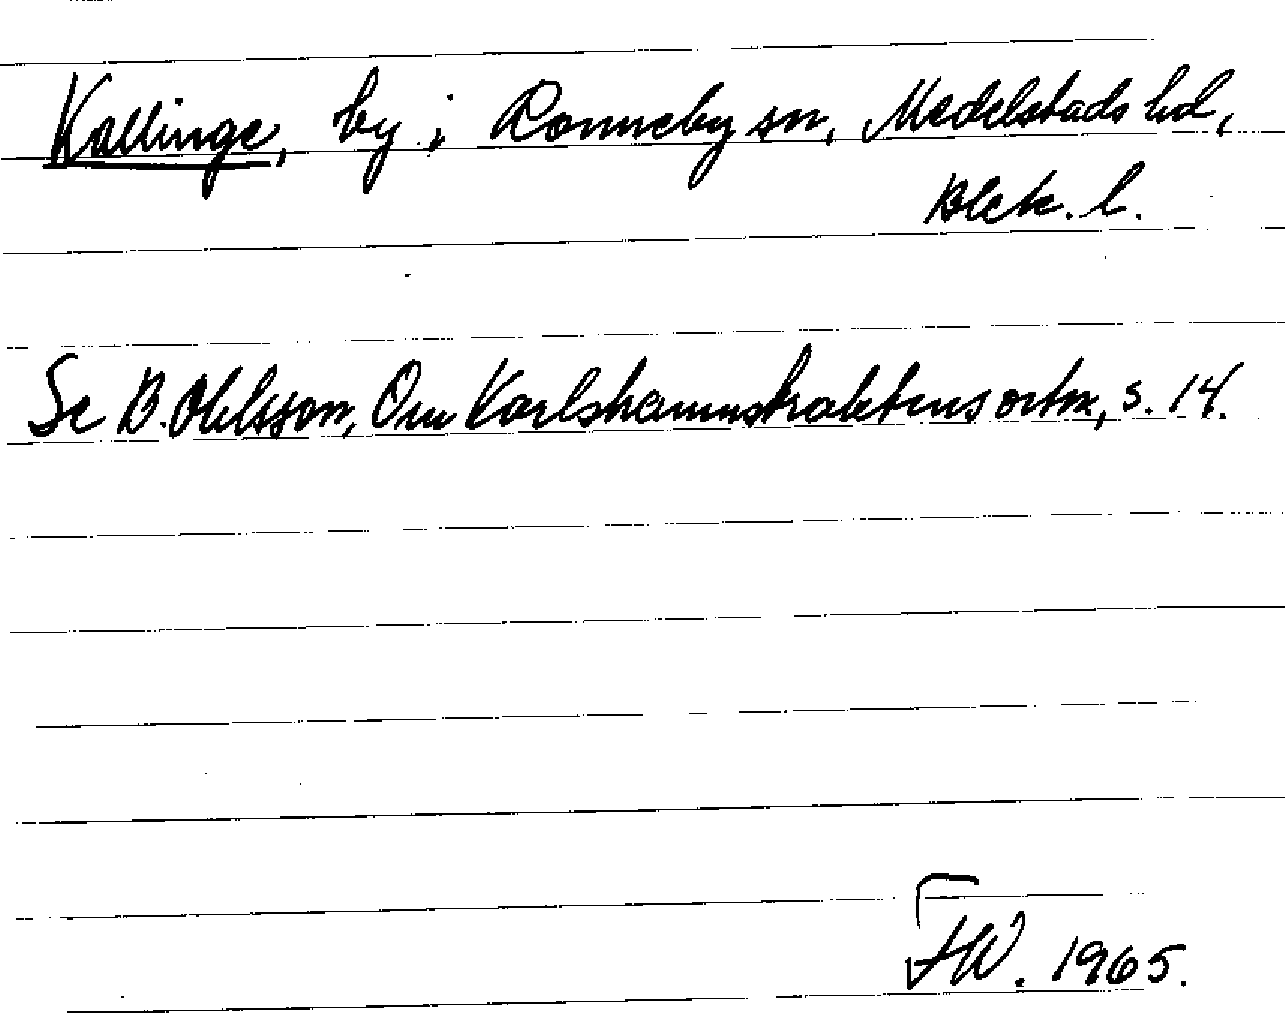 Kallinge, by i Ronneby sn, Medelstads hd,
Blek. l.
Se B. Ohlsson, Om Karlshamnstraktens ortn, s. 14.
FW. 1965.